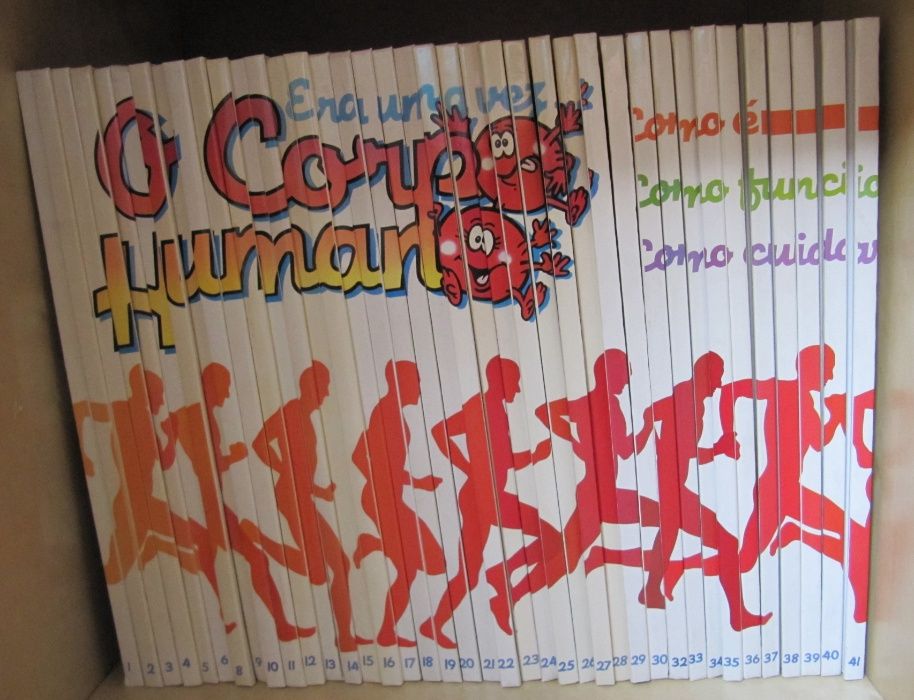 Era uma vez
O Corpo
Humano
Como é
Como funcio
Como cuidar
1 2 3 4 5 6 8 9 10 11 12 13 14 15 16 17 18 19 20 21 22 23 24 25 26 27 28 29 30 32 33 34 35 36 37 38 39 40 41